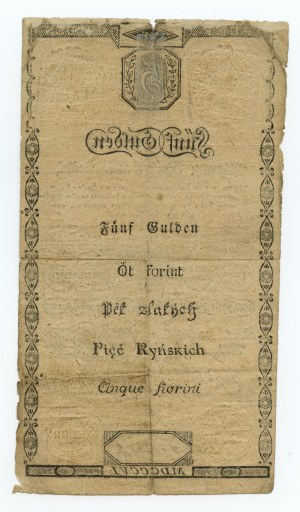 Fünf Gulden
Fünf Gulden
Öt forint
Pět zlatých
Pięć Ryńskich
Cinque fiorini
MDCCCVI